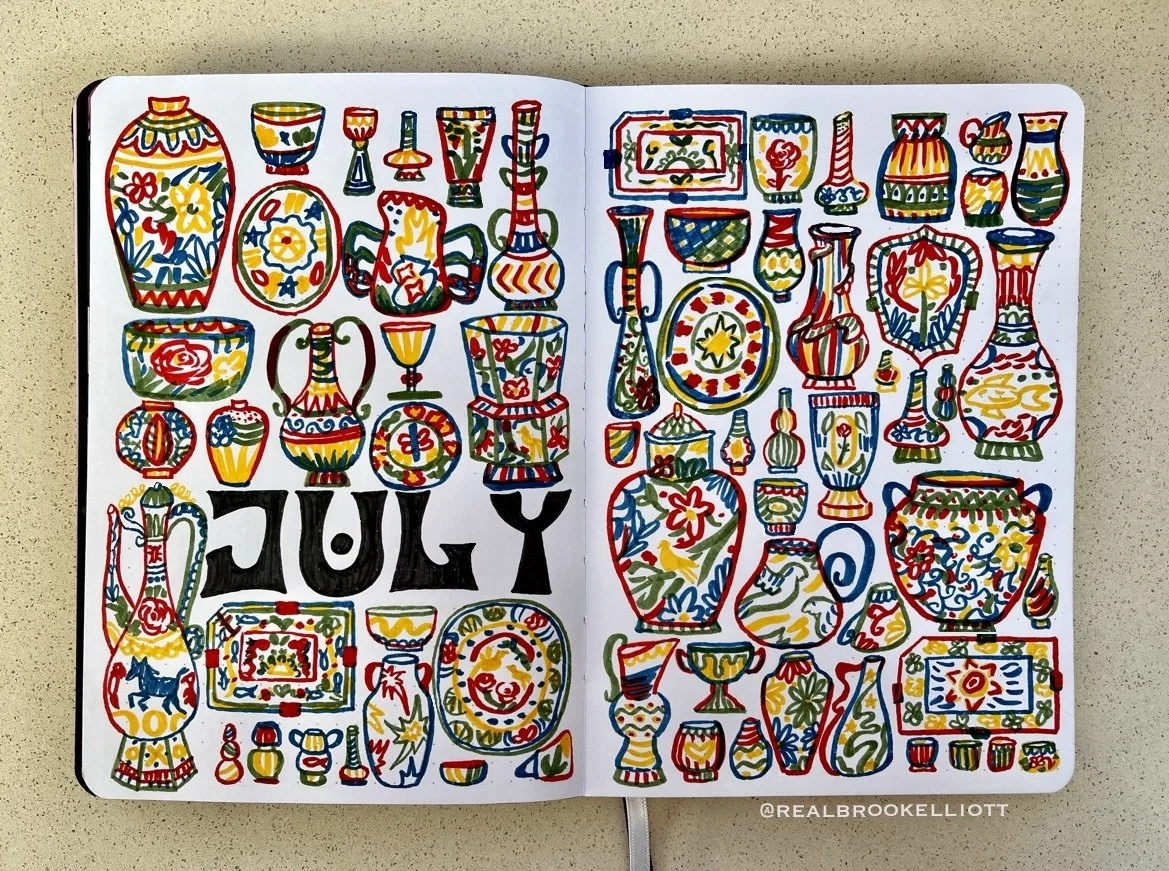 JULY
@REALBROOKELLIOTT